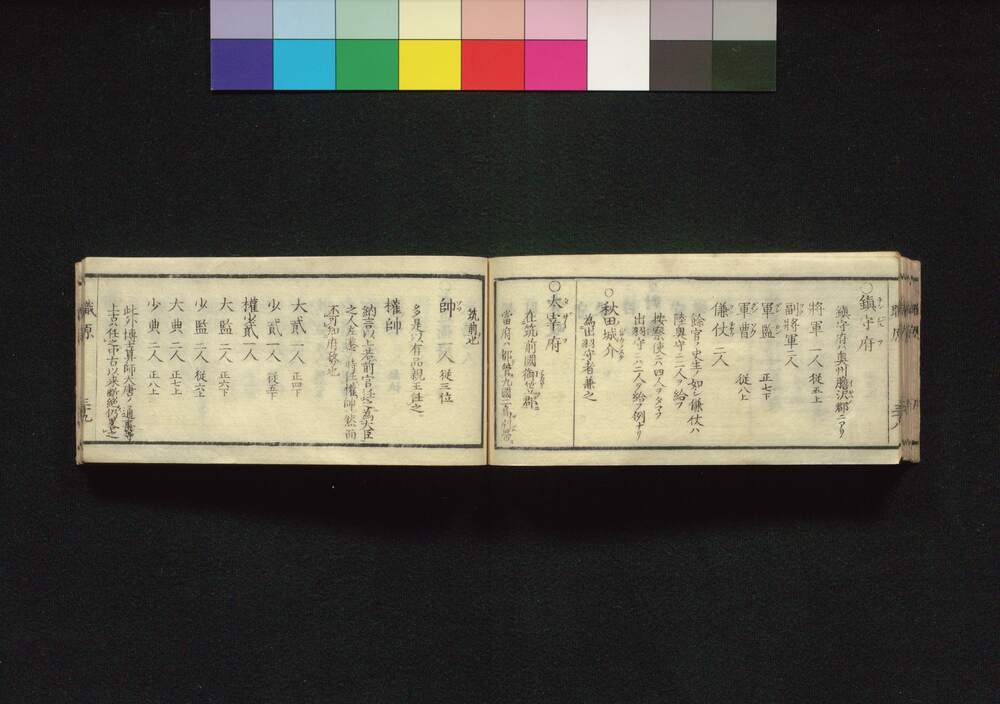 ○鎮守府
鎮守府ハ奥州膽沢郡ニアリ
将軍 一人 従五上
副将軍 二人
軍監 正七下
軍曹 従八上
傔仗 二人
餘官ハ史生ノ如シ傔仗ハ
陸奥守ニ二人ヲ給フ
按察使ニハ四人ヲタマフ
出羽守ニハ二人ヲ給フ例ナリ
○秋田城介
為出羽守者兼之
○太宰府
在筑前國御笠郡
當府ハ都管九國二島
筑前也
帥 一人 従三位
多是以有品親王任之
權帥
納言以上若前官任之為大臣
之人左遷之時任權帥然而
不可知府務也
大貳 一人 正四下
少貳 一人 従五下
權少貳 一人
大監 二人 正六下
少監 二人 従六上
大典 二人 正七上
少典 二人 正八上
此外博士算師大唐ノ通事等
上古任之中古以来断絶仍畧之
職原 三十九